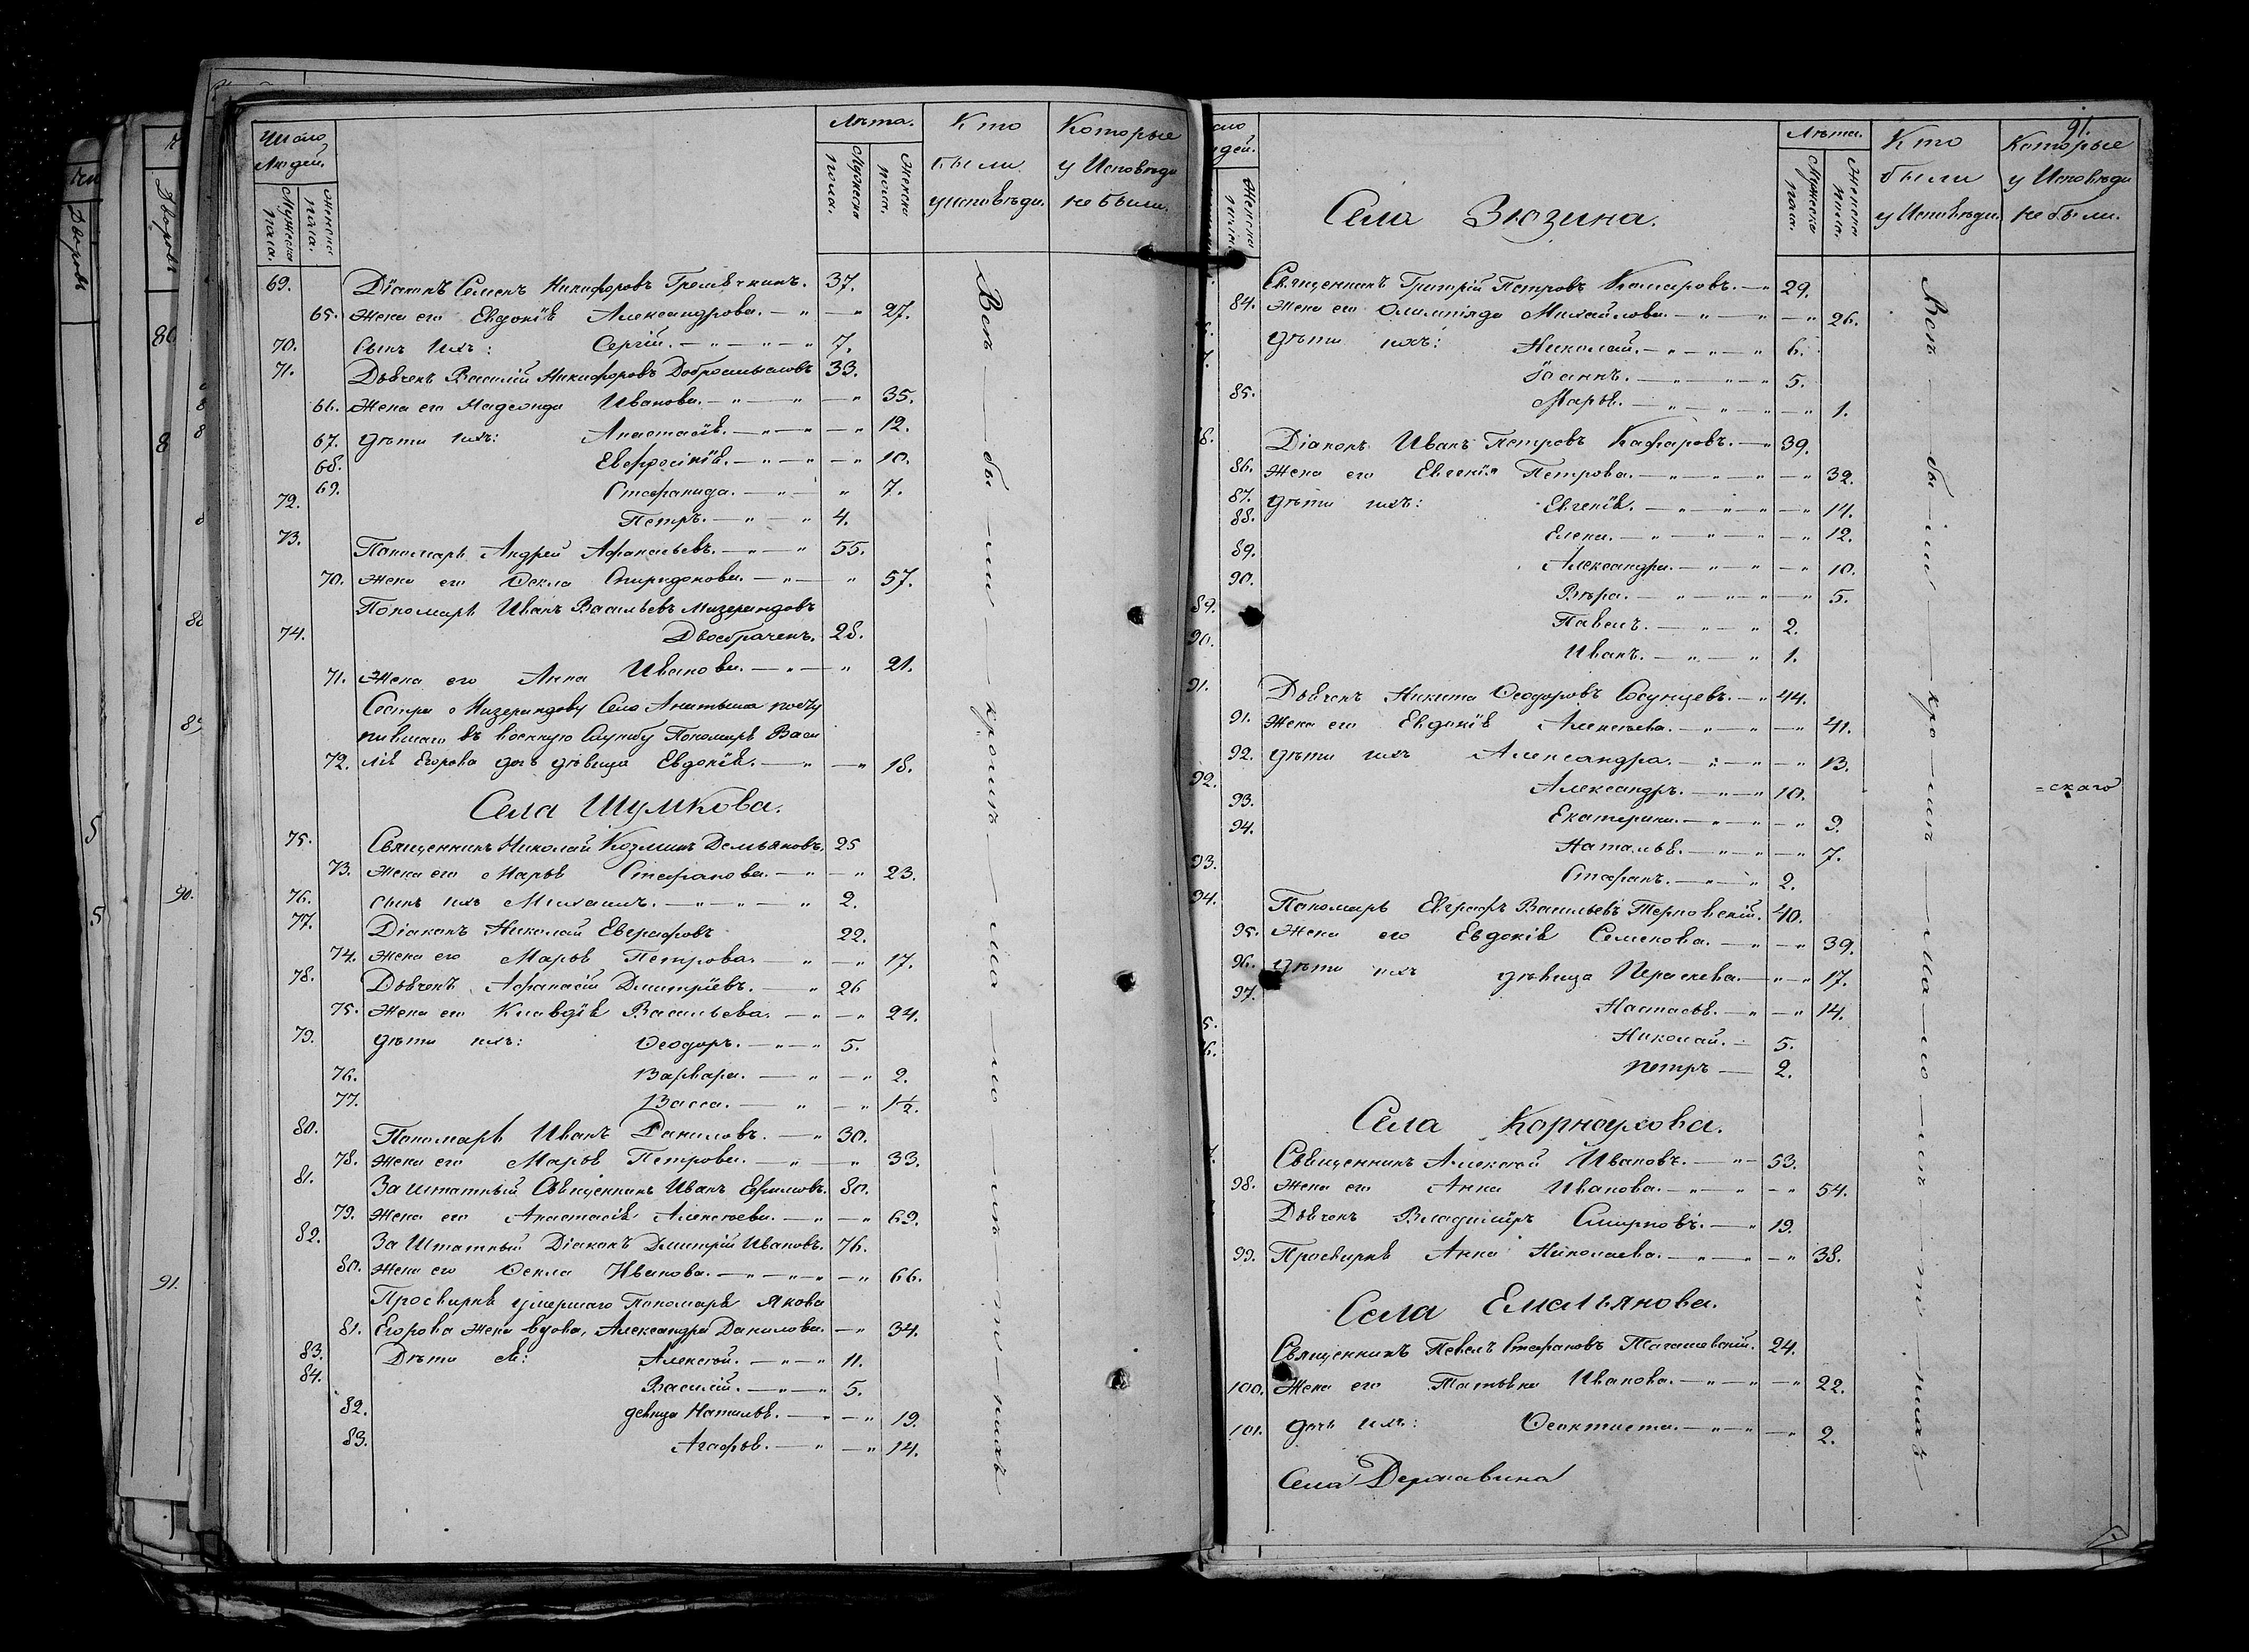 Число Людей.
Мужеска пола.
Женска пола.
Лѣта.
Мужеска пола.
Женска пола.
Кто были у исповѣди.
Которые у Исповѣди не были.
69. Діаконъ Семенъ Никифоровъ 37.
65. Жена его Евдокія Александрова. 27.
70. Сынъ ихъ: Сергій. 7.
71. Дьячекъ Василій Никифоровъ Добросмысловъ 33.
66. Жена его Иванова. 35.
67. дѣти ихъ: Анастасія. 12.
68. Евфросинія. 10.
69. Стефанида. 7.
72. Петръ. 4.
73. Пономарь Андрей Афанасьевъ. 55.
70. Жена его Ѳекла Спиридонова. 57.
Пономарь Иванъ Васильевъ Мизерандовъ
74. Двоебраченъ. 28.
71. Жена его Анна Иванова. 21.
Сестра Мизерандову Села посту
пившаго въ военную Службу Пономаря Васи
72. лія Егорова дочь дѣвица Евдокія. 18.
Села Шумкова.
75. Священникъ Николай Козминъ Демьяновъ. 25
73. Жена его Марья Стефанова. 23.
76. сынъ ихъ Михаилъ. 2.
77. Діаконъ Николай Евграфовъ 22.
74. Жена его Марья Петрова. 17.
78. Дьячекъ Афанасій Дмитріевъ. 26
75. Жена его Клавдія Васильева. 24.
79. дѣти ихъ: Ѳеодоръ. 5.
76. Варвара. 2.
77. Васса. 1½.
80. Пономарь Иванъ Даниловъ. 30.
78. Жена его Марья Петрова. 33.
81. За штатный Священникъ Иванъ Ефимовъ. 80.
79. Жена его Анастасія Алексѣева. 69.
82. За Штатный Діаконъ Дмитрій Ивановъ. 76.
80. Жена его Ѳекла Иванова. 66.
Просвирня умершаго Пономаря Якова
81. Егорова жена вдова, Александра Данилова. 34.
83. Дѣти ея: Алексѣй. 11.
84. Василій. 5.
82. девица Наталья. 19.
83. Агафья. 14.
Всѣ бы ли кромѣ ма ло лѣ т нихъ
91.
Женска пола.
Лѣта.
Мужеска пола.
Женска пола.
Кто были у Исповѣди.
Которые у Исповѣди не были.
Села Зюзина.
Священникъ Григорій Петровъ Комаровъ. 29.
84. Жена его Олимпіяда Михайлова. 26.
дѣти ихъ: Николай. 6.
Іоаннъ. 5.
85. Марья. 1.
Діаконъ Иванъ Петровъ Кафаровъ. 39.
86. Жена его Евгенія Петрова. 32.
87. дѣти ихъ: Евгенія. 14.
88. Елена. 12.
89. Александра. 10.
90. Вѣра. 5.
Павелъ. 2.
Иванъ. 1.
Дьячекъ Никита Ѳеодоровъ 44.
91. Жена его Евдокія Алексѣева. 41.
92. дѣти ихъ Александра. 13.
Александръ. 10.
93. Екатерина. 9.
94. Наталья. 7.
Стефанъ. 2.
Пономарь Евграфъ Васильевъ Терновскій. 40.
95. Жена его Евдокія Семенова. 39.
96. дѣти ихъ дѣвица Параскева. 17.
97. Настасья. 14.
Николай. 5.
Петръ 2.
Села Корноухова.
Священникъ Алексѣй Ивановъ. 53.
98. Жена его Анна Иванова. 54.
Дьячекъ Владиміръ Смирновъ. 19.
99. Просвирня Анна Николаева. 38.
Села Емальянова.
Священникъ Павелъ Стефановъ 24.
100. Жена его Татьяна Иванова. 22.
101. дочь ихъ: Ѳеоктиста. 2.
Села Державина
Всѣ бы ли кро мѣ ма ло лѣ т нихъ
=скаго